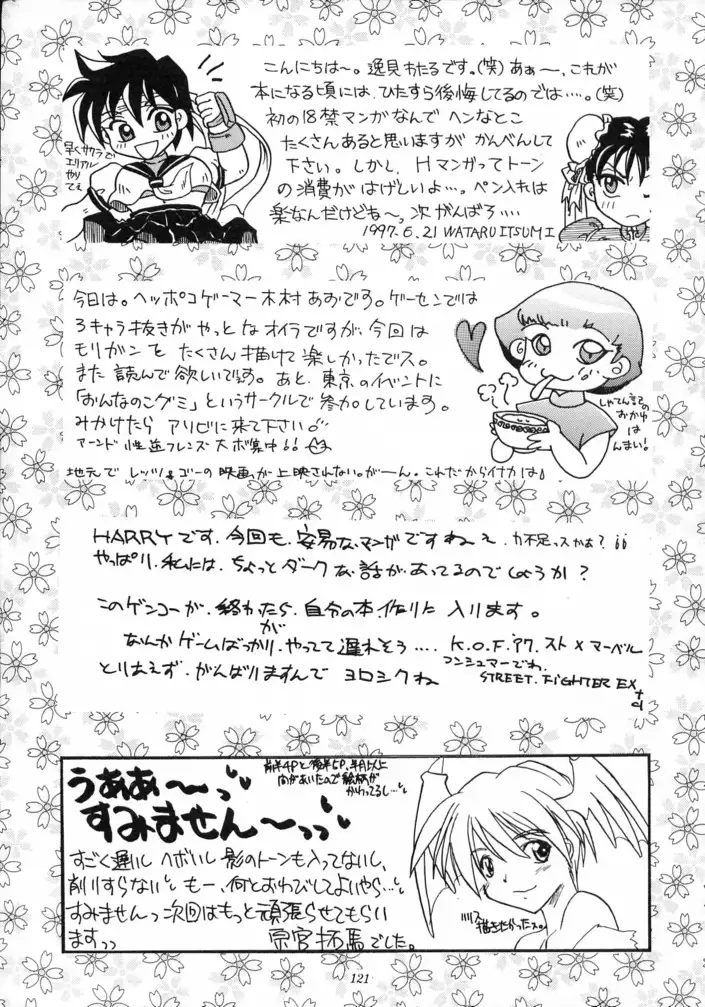 こんにちは〜。逸見わたるです。(笑)あぁ〜、これが
本になる頃には、ひたすら後悔してるのでは……。(笑)
初の18禁マンガなんでヘンなとこ
たくさんあると思いますがかんべんして
下さい。しかし、Hマンガってトーン
の消費がはげしいよ…。ペン入れは
楽なんだけどね〜、次がんばろ‥‥
1997.6.21 WATARU ITSUMI
早くサクラで
エリアル
やり
てぇ
今日は。ヘッポコゲーマー木村あおです。ゲーセンでは
3キャラ抜きがやっとなオイラですが、今回は
モリガンをたくさん描けて楽しかったでス。
また読んで欲しいです。あと、東京のイベントに
「おんなのこグミ」というサークルで参加しています。
みかけたらアソビに来て下さい
アーンド フレンズ大ボ集中!!
地元でレッツ&ゴーの映画が上映されない。が―ん。これだからイナカは
のおかゆ
は
んまい!
HARRYです.今回も.安易なマンガですねぇ.力不足っスかぁ?
やっぱり.私には.ちょっとダークな話があってるのでしょうか?
このゲンコーが.終わったら.自分の本.作りに入ります。
なんかゲームばっかりがやってて遅れそう…. K.O.F.
スト×マーベル
コンシュマーでわ.
STREET.FIGHTER EX
とりあえず.がんばりますんでヨロシクね
うああ〜っ
すみません〜っっ
前半4Pと後半5P、半月以上
間があいたので絵柄が
かわってるし…
すごく遅いしヘボいし影のトーンも入ってないし、
削りすらないしもー、何とおわびしてよいやら…
すみませんっ次回はもっと頑張らせてもらい
ますっっ
でした。
描きたかったス。
121